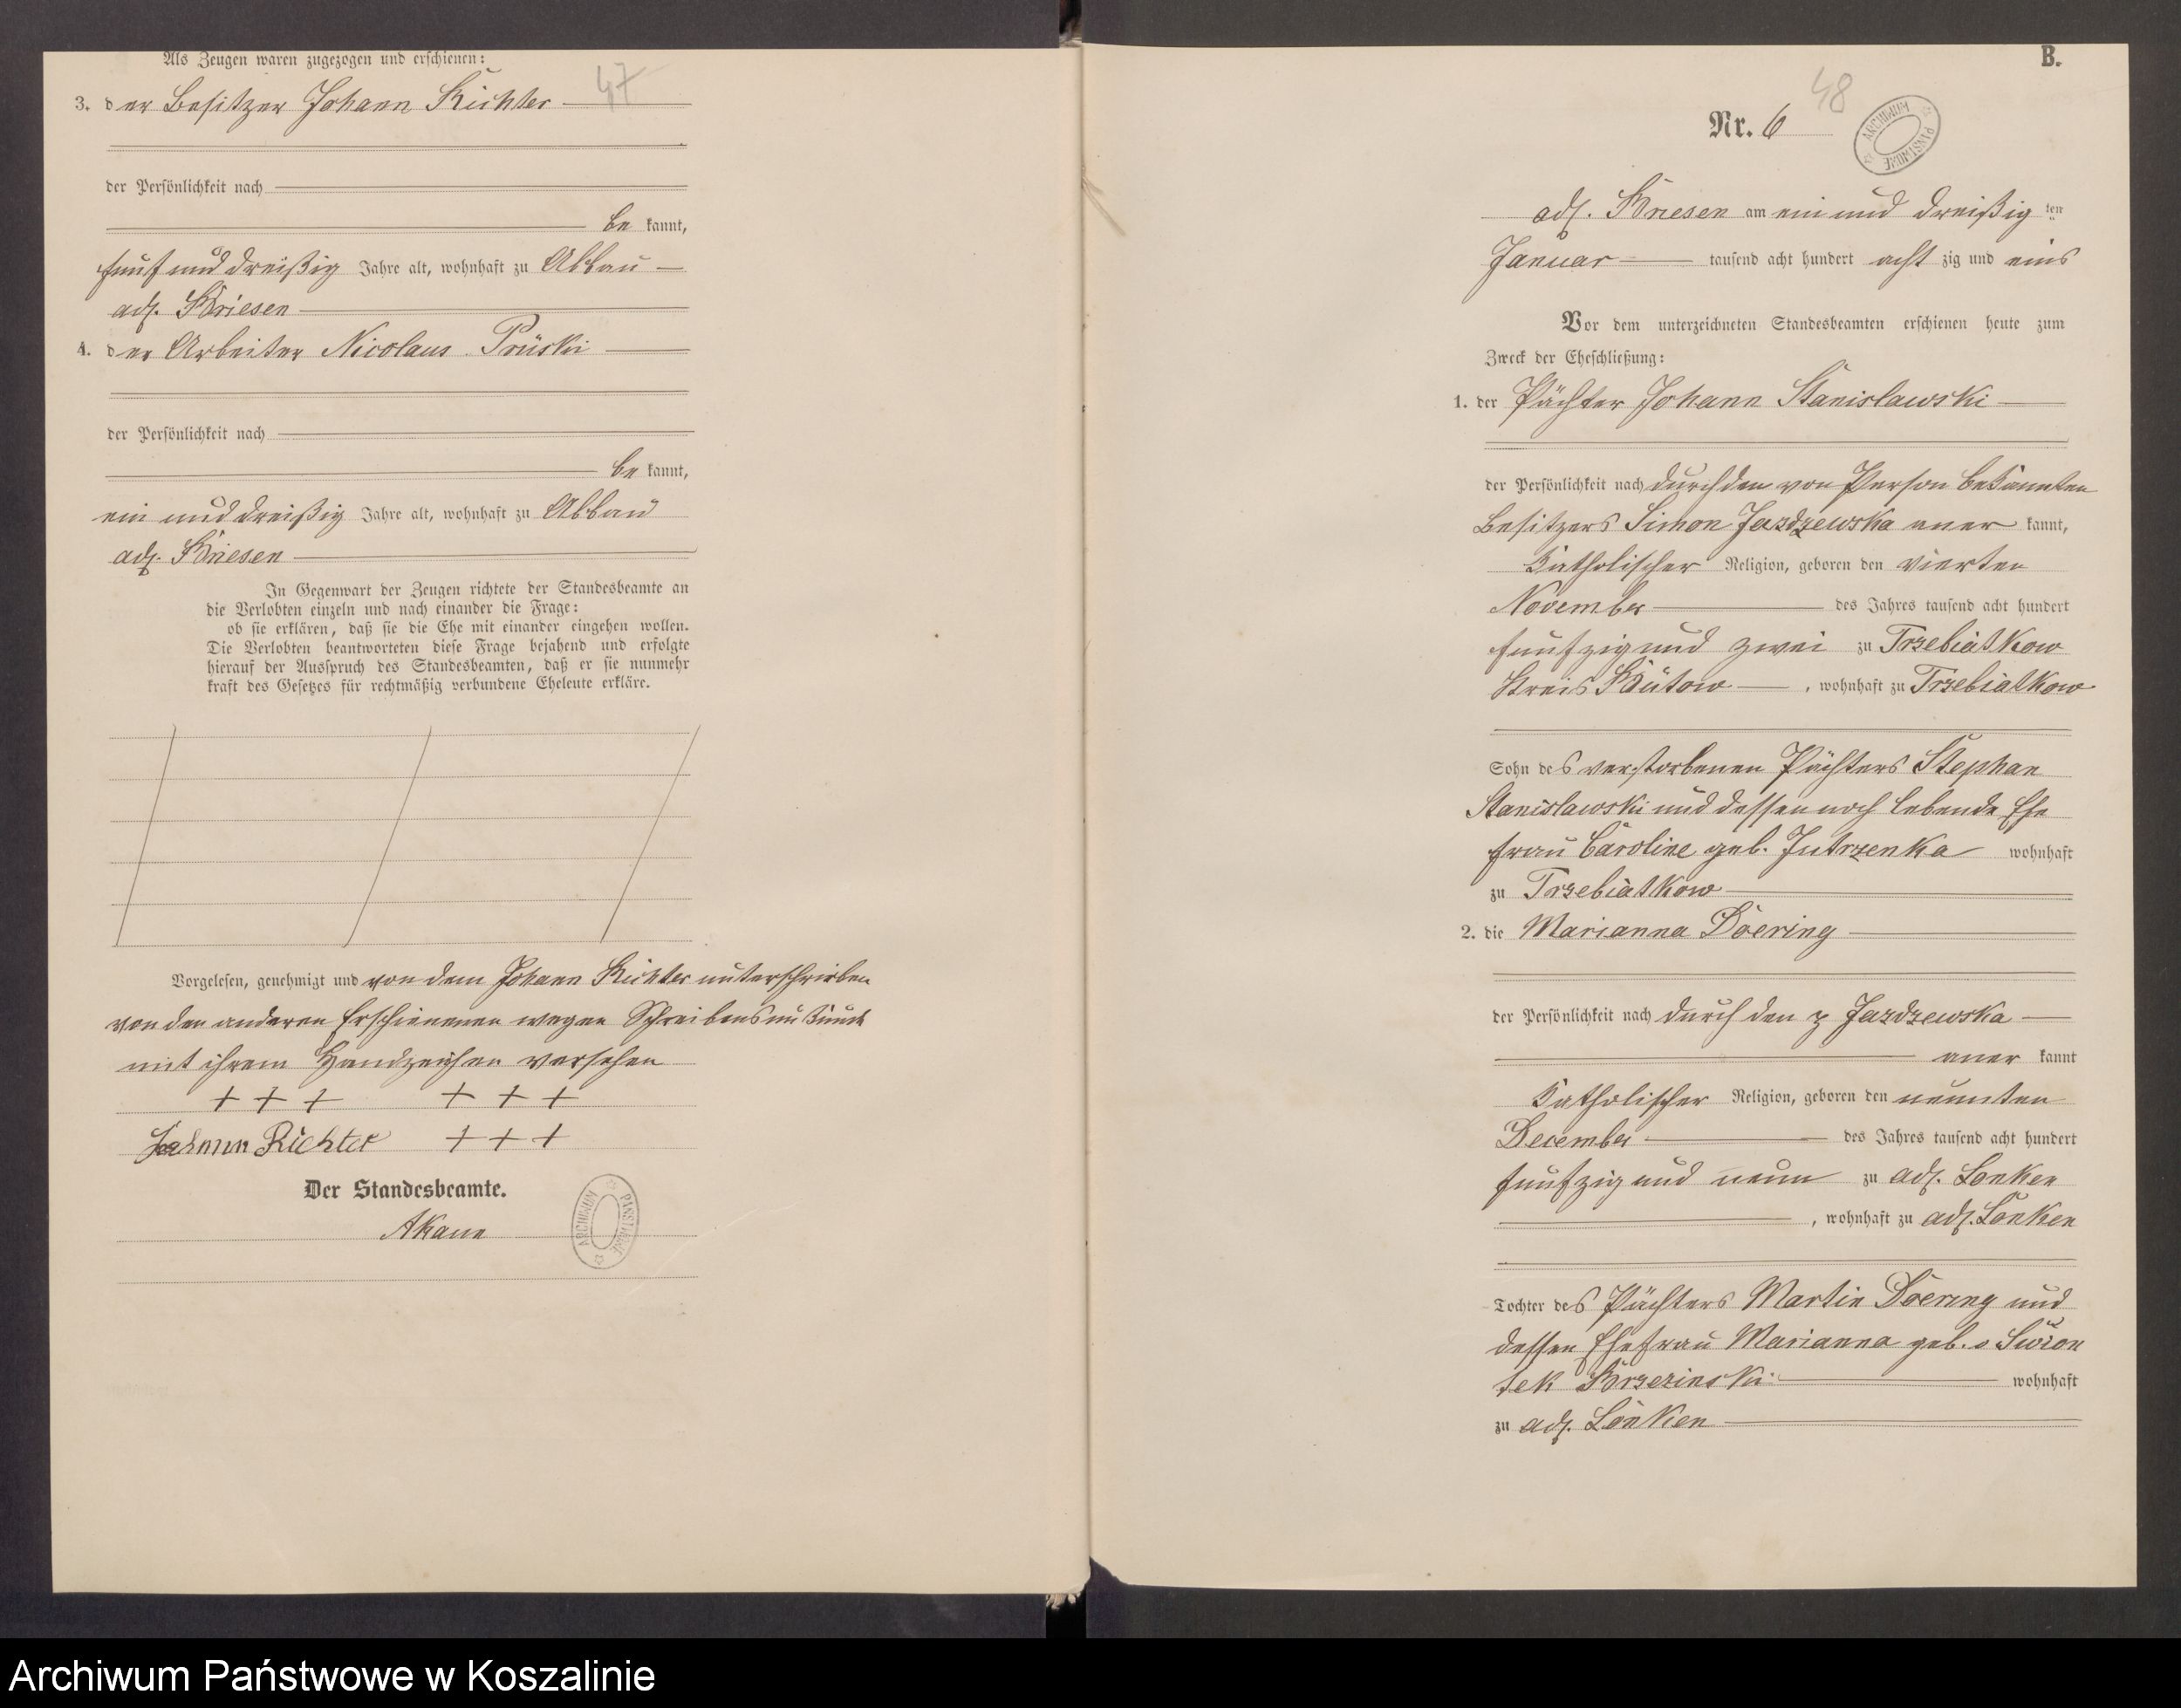 Als Zeugen waren zugezogen und erschienen:
47
3. der Besitzer Johann Richter
der Persönlichkeit nach
be kannt,
fünf und dreißig Jahre alt, wohnhaft zu Abbau
adl. Briesen
4. der Arbeiter Nicolaus Prüski
der Persönlichkeit nach
be kannt,
ein und dreißig Jahre alt, wohnhaft zu Abbau
adl. Briesen
In Gegenwart der Zeugen richtete der Standesbeamte an
die Verlobten einzeln und nach einander die Frage:
ob sie erklären, daß sie die Ehe mit einander eingehen wollen.
Die Verlobten beantworteten diese Frage bejahend und erfolgte
hierauf der Ausspruch des Standesbeamten, daß er sie nunmehr
kraft des Gesetzes für rechtmäßig verbundene Eheleute erkläre.
Vorgelesen, genehmigt und von dem Johann Richter unterschrieben
von den anderen Erschienenen wegen Schreibensunkunde
mit ihrem Handzeichen versehen
+ + + + + +
Johann Richter + + +
Der Standesbeamte.
ARCHIWUM PAŃSTWOWE
B.
48
Nr. 6
ARCHIWUM PAŃSTWOWE
adl. Briesen am ein und dreißig ten
Januar tausend acht hundert acht zig und eins
Vor dem unterzeichneten Standesbeamten erschienen heute zum
Zweck der Eheschließung:
1. der Pächter Johann Stanislawski
der Persönlichkeit nach durch den von Person bekannten
Besitzers Simon Jazdzewska aner kannt,
katholischer Religion, geboren den vierten
November des Jahres tausend acht hundert
fünfzig und zwei zu Trzebiatkow
Kreis Bütow, wohnhaft zu Trzebiatkow
Sohn des verstorbenen Pächters Stephan
Stanislawski und dessen noch lebende Ehe
frau Caroline geb. Jutrzenka wohnhaft
zu Trzebiatkow
2. die Marianna Doering
der Persönlichkeit nach durch den Jazdzewska
aner kannt
katholischer Religion, geboren den neunten
December des Jahres tausend acht hundert
fünfzig und neun zu adl. Lonken
, wohnhaft zu adl. Lonken
Tochter des Pächters Martin Doering und
dessen Ehefrau Marianna geb. v
tek Brzezinski wohnhaft
zu adl. Lonken
Archiwum Państwowe w Koszalinie